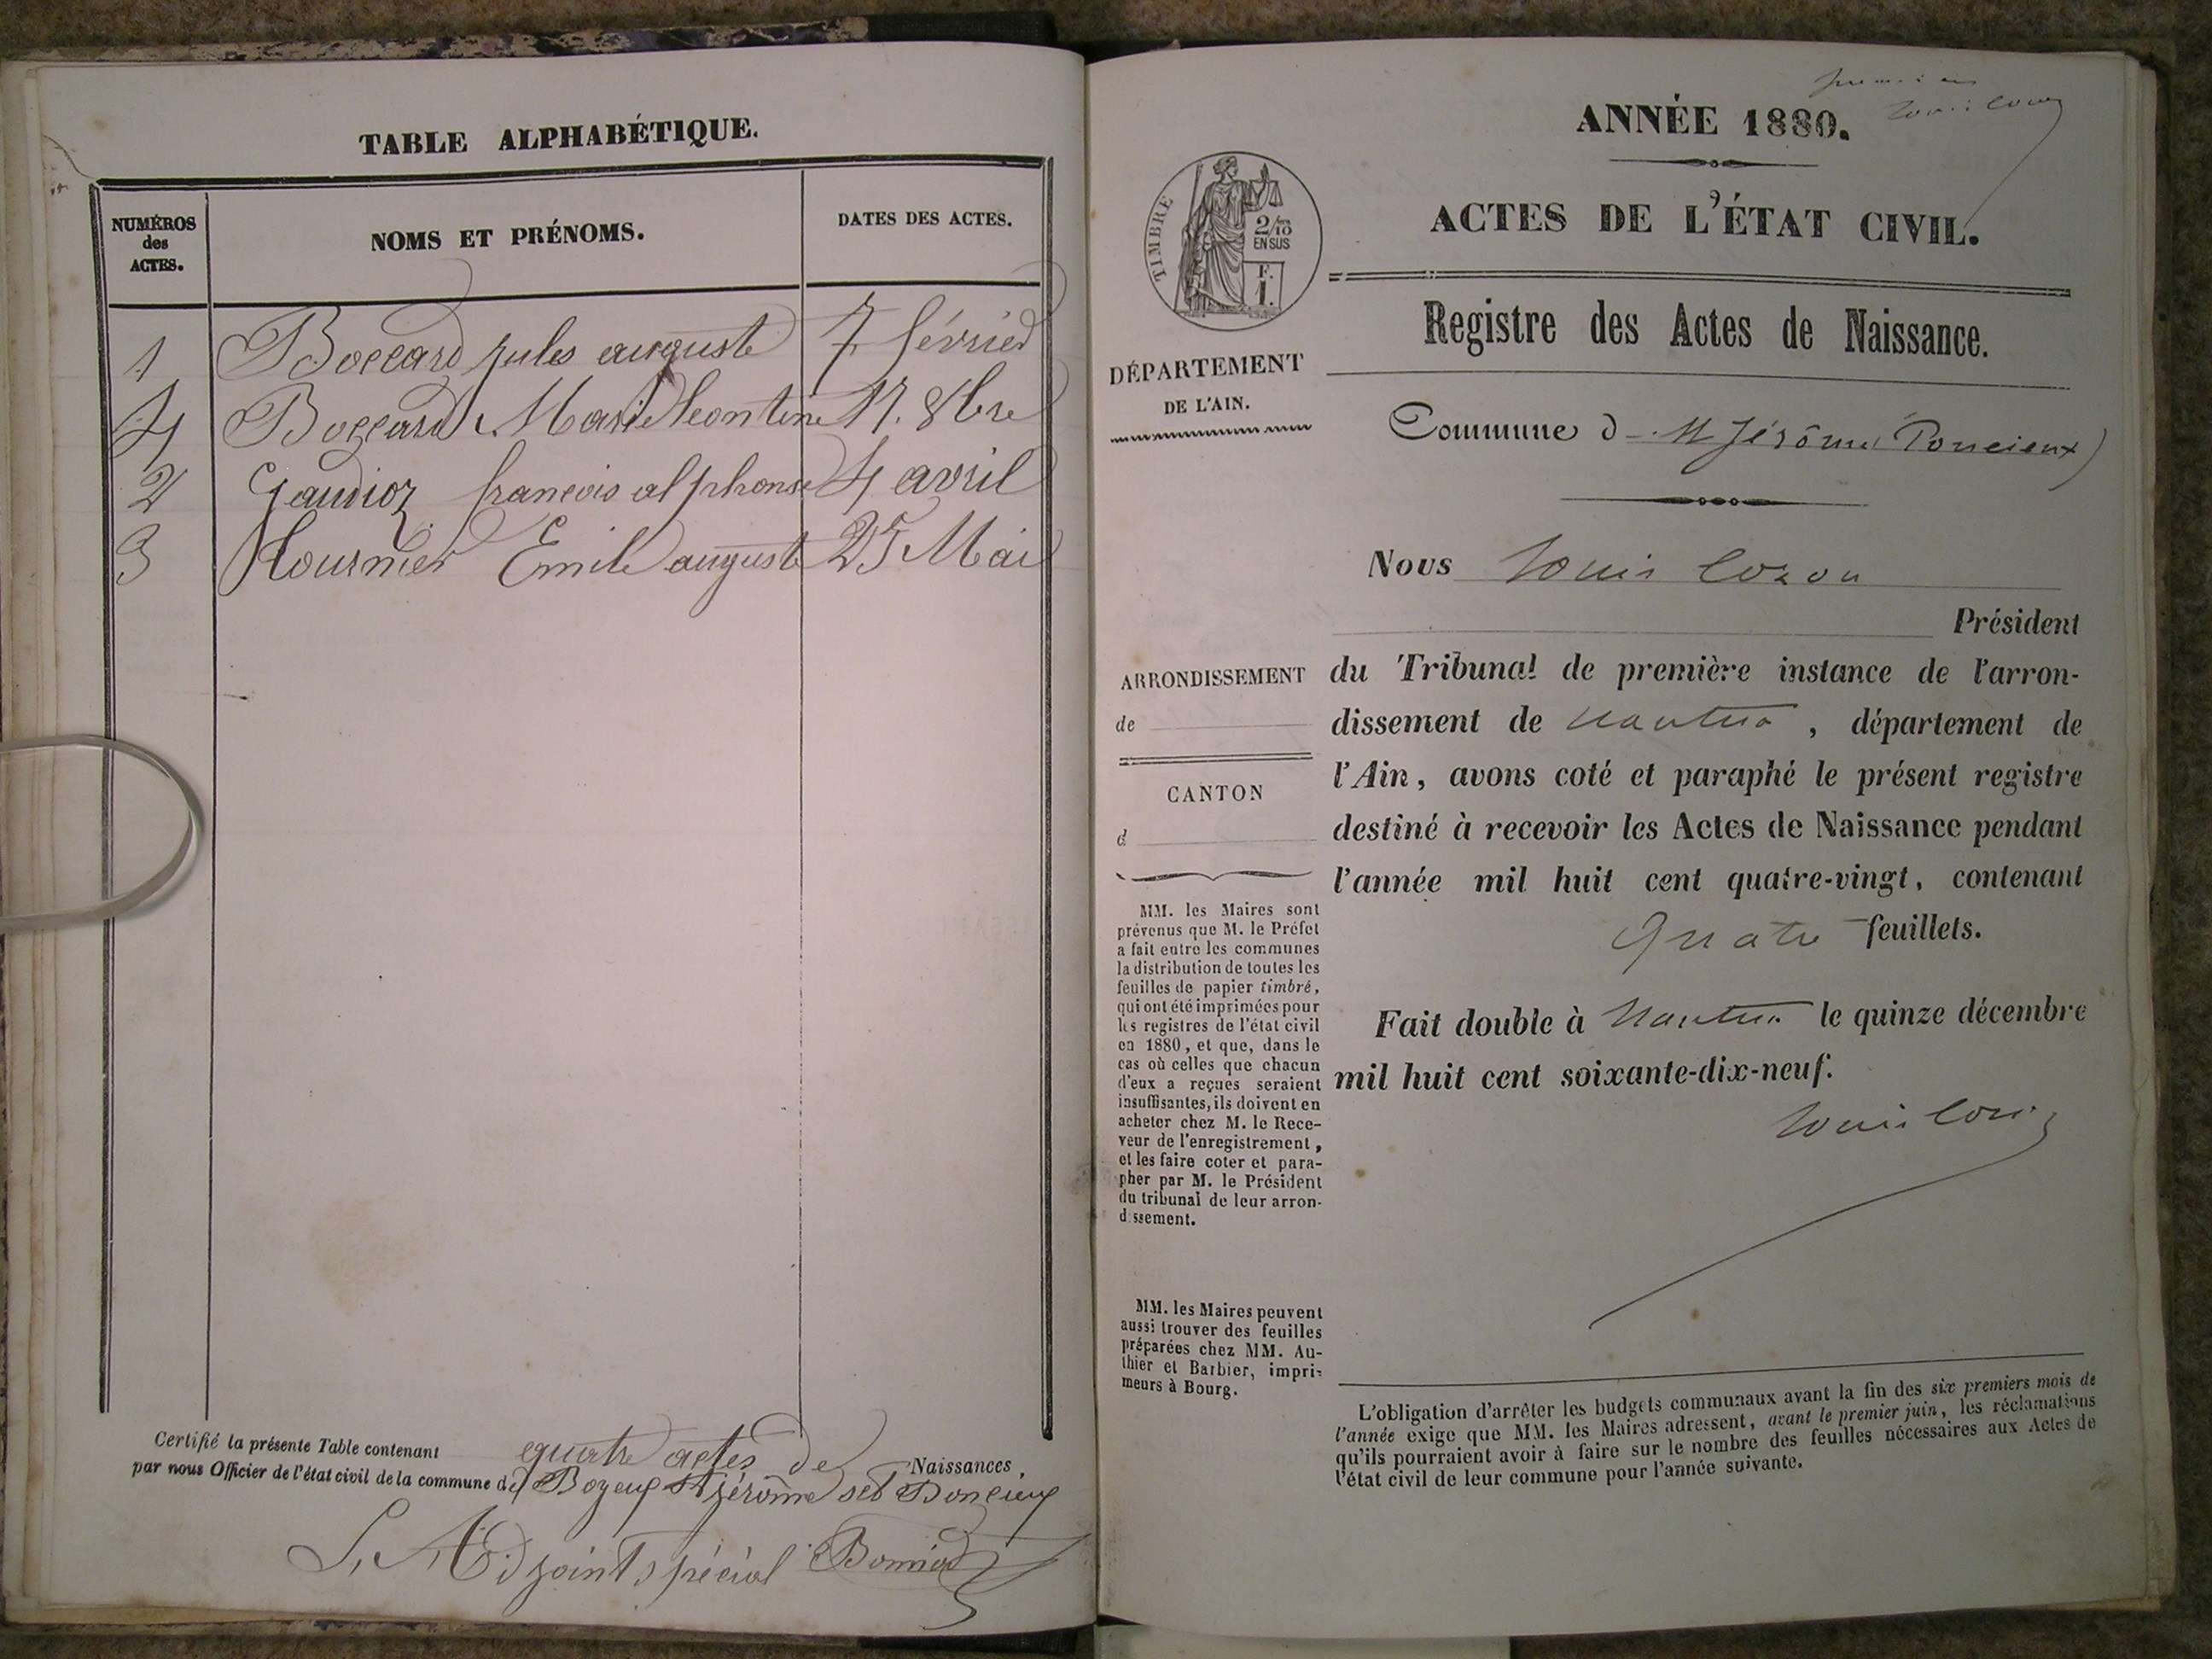 TABLE ALPHABÉTIQUE.
NUMÉROS des ACTES.
NOMS ET PRÉNOMS.
DATES DES ACTES.
1 Boccard jules auguste 7 février
4 Boccard Marie Leontine 17. 8bre
2 Gaudioz francois alphonse 4 avril
3 Hournier Emile auguste 25 Mai
Certifié la présente Table contenant quatre actes de Naissances,
par nous Officier de l'état civil de la commune de Bozeux St jérôme set Poncieux
L'Adjoint spécial
ANNÉE 1880.
ACTES DE L'ÉTAT CIVIL.
TIMBRE
2/10
EN SUS
F.
1.
Registre des Actes de Naissance.
DÉPARTEMENT
DE L'AIN.
Commune d St Jérôme Poncieux
Nous Louis Cozon
Président
du Tribunal de première instance de l'arron-
dissement de nantua, département de
l'Ain, avons coté et paraphé le présent registre
destiné à recevoir les Actes de Naissance pendant
l'année mil huit cent quatre-vingt, contenant
Quatre feuillets.
Fait double à Nantua le quinze décembre
mil huit cent soixante-dix-neuf.
Louis Cozon
ARRONDISSEMENT
de
CANTON
d
MM. les Maires sont
prévenus que M. le Préfet
a fait entre les communes
la distribution de toutes les
feuilles de papier timbré,
qui ont été imprimées pour
les registres de l'état civil
en 1880, et que, dans le
cas où celles que chacun
d'eux a reçues seraient
insuffisantes, ils doivent en
acheter chez M. le Rece-
veur de l'enregistrement,
et les faire coter et para-
pher par M. le Président
du tribunal de leur arron-
dissement.
MM. les Maires peuvent
aussi trouver des feuilles
préparées chez MM. Au-
thier et Barbier, impri-
meurs à Bourg.
L'obligation d'arrêter les budgets communaux avant la fin des six premiers mois de
l'année exige que MM. les Maires adressent, avant le premier juin, les réclamations
qu'ils pourraient avoir à faire sur le nombre des feuilles nécessaires aux Actes de
l'état civil de leur commune pour l'année suivante.